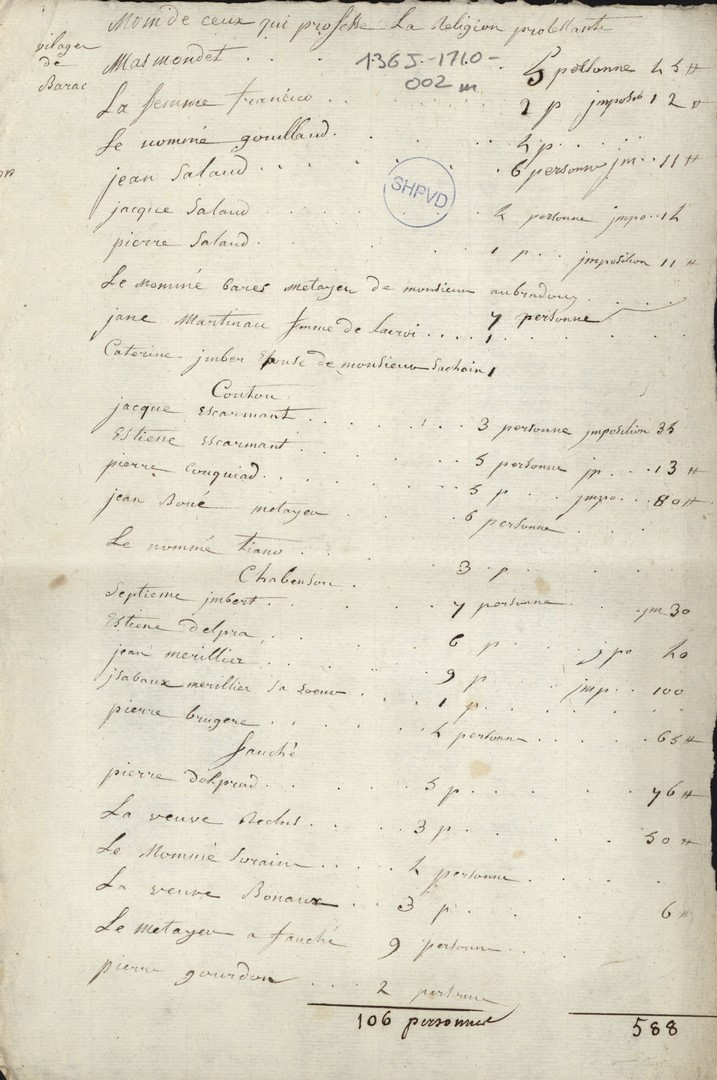 Nom de ceux qui professe La Religion protestante
vilager
de
Barac
1365-1710-
002 m
SHPVD
Masmondet . . . 5 personne 45 ₶
La femme francico . . . 2 p imposit 12 ₶
Le nommé gouillaud . . . 4 p . . .
jean Salaud . . . 6 personne jm . . 11 ₶
jacque Salaud . . . 4 personne impo . . 14
pierre Salaud . . . 1 p . jmposition 11 ₶
Le Nommé bares metayer de monsieur aubradouz . . .
7 personne
jane Martinau femme de Lacroi . . . . 1
Caterine jmber Epouse de monsieur Sachoin 1
Coutou
jacque Escarmant . . . 3 personne jmposition 35
Estiene Escarmant . . . 5 personne jp . . . 13 ₶
pierre Couquiad . . . 5 p . jmpo . . . 80 ₶
jean Boué metayer . . . 6 personne
Le nommé tiano . . . 3 p . . .
Chabensou
Septieme jmbert . . . 7 personne . . . jm 30
Estiene delpra . . . 6 p . . . jpo 40
jean merillier . . . 9 p . . . jmp . . 100
jsabaux merillier Sa Soeur . . 1 p . . .
pierre brugere . . . 4 personne . . . 65 ₶
fauché
pierre delprad . . . 5 p . . . 76 ₶
La veuve Reclus . . . 3 p . . . 50 ₶
Le Nommé Sorain . . . 4 personne . . .
La veuve Bonaux . . 3 p . . . 6 ₶
Le metayer a fauché 9 personne . . .
pierre gourdon . . . . 2 personne
106 personnes 588